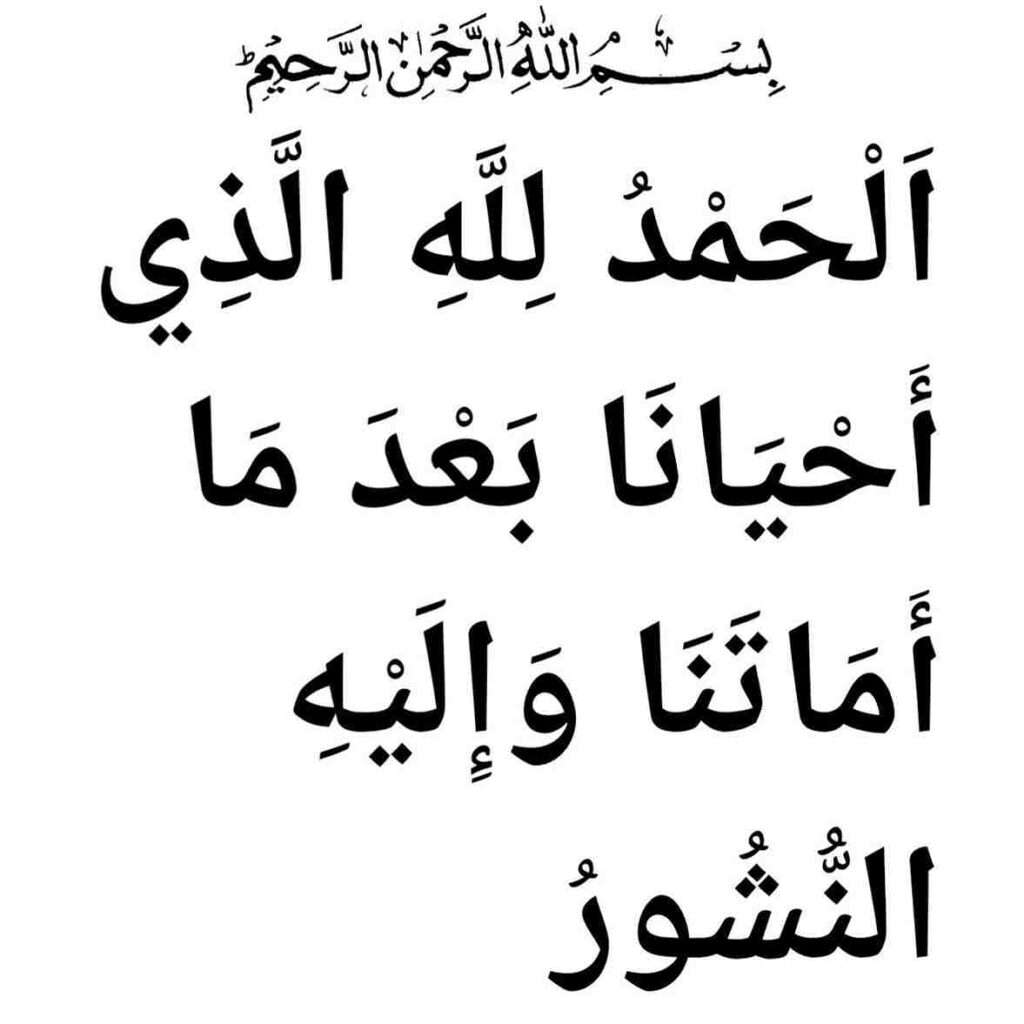 بِسْمِ اللّٰهِ الرَّحْمٰنِ الرَّحِيْمِ
اَلْحَمْدُ لِلَّهِ الَّذِي
أَحْيَانَا بَعْدَ مَا
أَمَاتَنَا وَإِلَيْهِ
النُّشُورُ